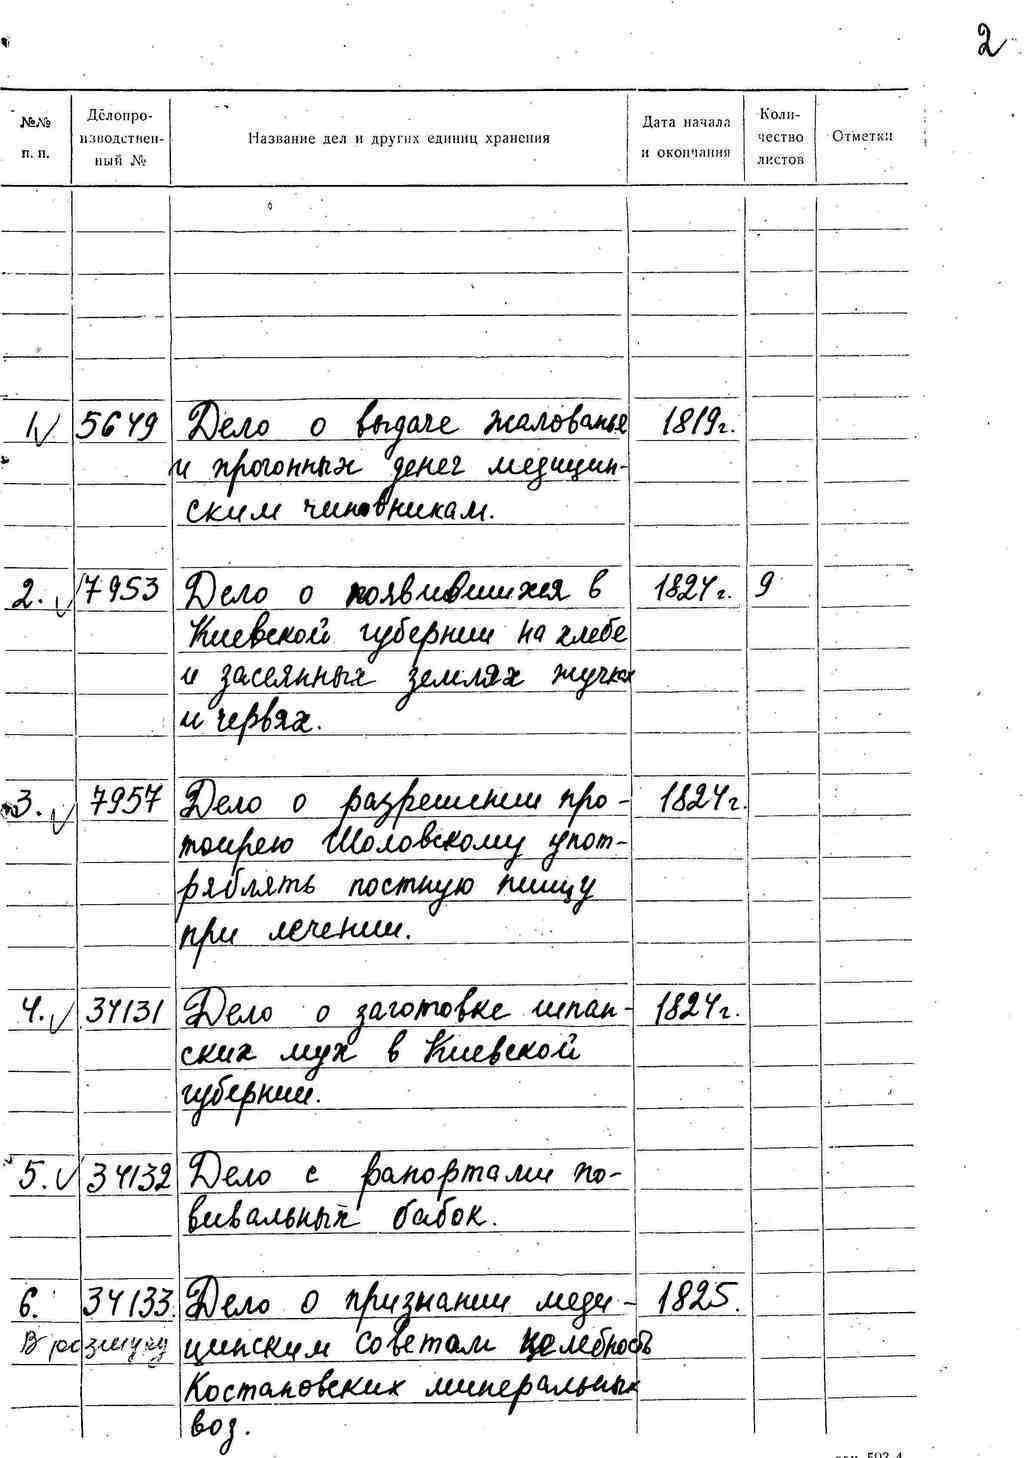 2
№№ п. п.
Делопроизводственный №
Название дел и других единиц хранения
Дата начала и окончания
Количество листов
Отметки
1. 5649 Дело о выдаче жалованья 1819г.
и прогонных денег медицин-
ским чиновникам.
2. 7953 Дело о появившихся в 1824г. 9
Киевской губернии на хлебе
и засеянных землях жучках
и червях.
3. 7957 Дело о разрешении про- 1824г.
тоирею Шоловскому упот-
ряблять постную пищу
при лечении.
4. 34131 Дело о заготовке шпан- 1824г.
ских мух в Киевской
губернии.
5. 34132 Дело с рапортами по-
вивальных бабок.
6. 34133. Дело о признании меди- 1825.
В розшуку цинским советам целебность
Костановских минеральных
вод.